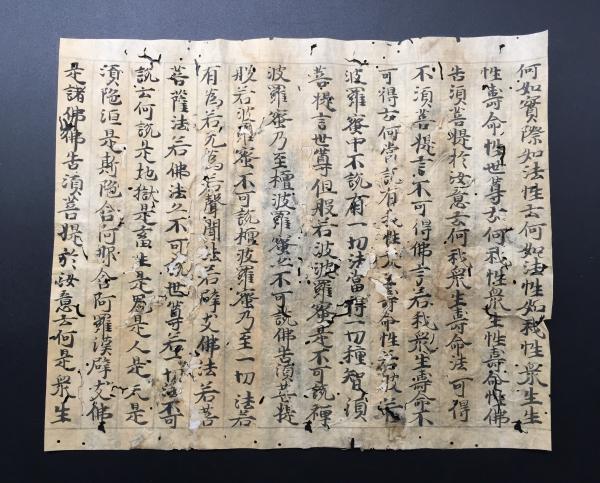 何如實際如法性云何如法性如我性眾生生
性壽命性世尊云何我性眾生性壽命性佛
告須菩提於汝意云何我眾生壽命法可得
不須菩提言不可得佛言若我眾生壽命不
可得云何當說有我性乃至壽命性若般若
波羅蜜中不說有一切法當得一切種智須
菩提言世尊但般若波波羅蜜是不可說禪
波羅蜜乃至檀波羅蜜亦不可說佛告須菩提
般若波羅蜜不可說檀波羅蜜乃至一切法若
有為若无為若聲聞法若辟支佛法若菩
菩薩法若佛法亦不可說世尊若一切法不可
說云何說是地獄是畜生是鬼是人是天是
須陁洹是斯陁含阿那含阿羅漢辟支佛
是諸佛佛告須菩提於汝意云何是眾生